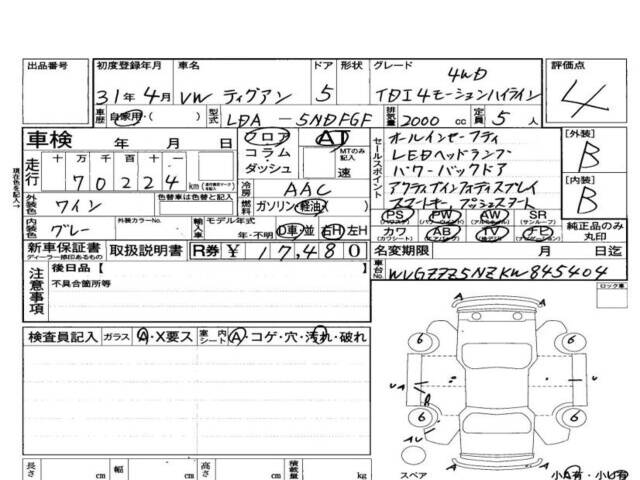 出品番号 初度登録年月 車名 ドア 形状 グレード 評価点
31年4月 VW ティグアン 5 4WD TDI4モーションハイライン 4
車歴 自家用・( ) 型式 LDA - 5NDFGF 排気量 2000 cc 定員 5 人
車検 年 月 日 フロア AT オールインセーフティ [外装] B
走行 十 万 千 百 十 一 コラム MTのみ記入 セールスポイント LEDヘッドランプ
7 0 2 2 4 km ダッシュ 速 パワーバックドア [内装] B
現在色を記入→ 外装色 ワイン 色替車は色替と記入 冷房 AAC アクティブインフォディスプレイ
燃料 ガソリン・軽油・( ) スマートキー プッシュスタート
内装色 グレー 外装カラーNo. 輸入車 モデル年式 年・不明 D車・並 右H 左H
PS (パワステ) PW (パワーウィンドウ) AW (アルミホイール) SR (サンルーフ) 純正品のみ丸印
カワ (カワシート) AB (エアバック) TV (純テレビ) ナビ
新車保証書 ディーラー捺印あるもの 取扱説明書 R券 ¥ 17,480 名変期限 月 日迄
注意事項 後日品【 車台No. WVGZZZ5NZKW845404
不具合箇所等 ロック車
検査員記入 ガラス A・X要ス 室内シート A・コゲ・穴・汚れ・破れ
A
6 6
A U U A U
R
6 6
A
長さ cm 幅 cm 高さ cm 積載量 kg スペア 小A有・小U有